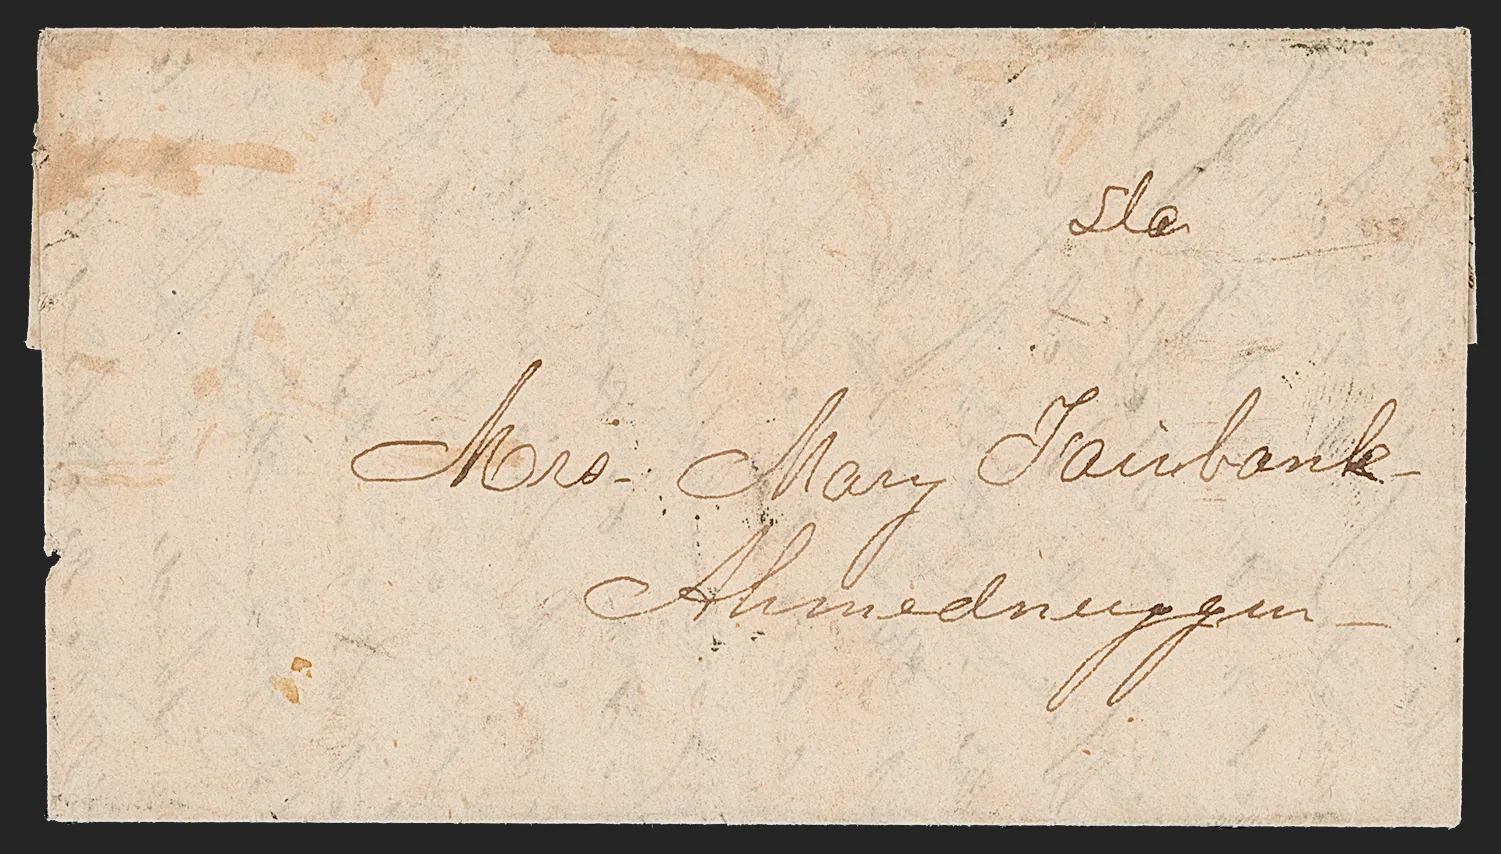 Mrs. Mary Fairbank
Ahmednuggur